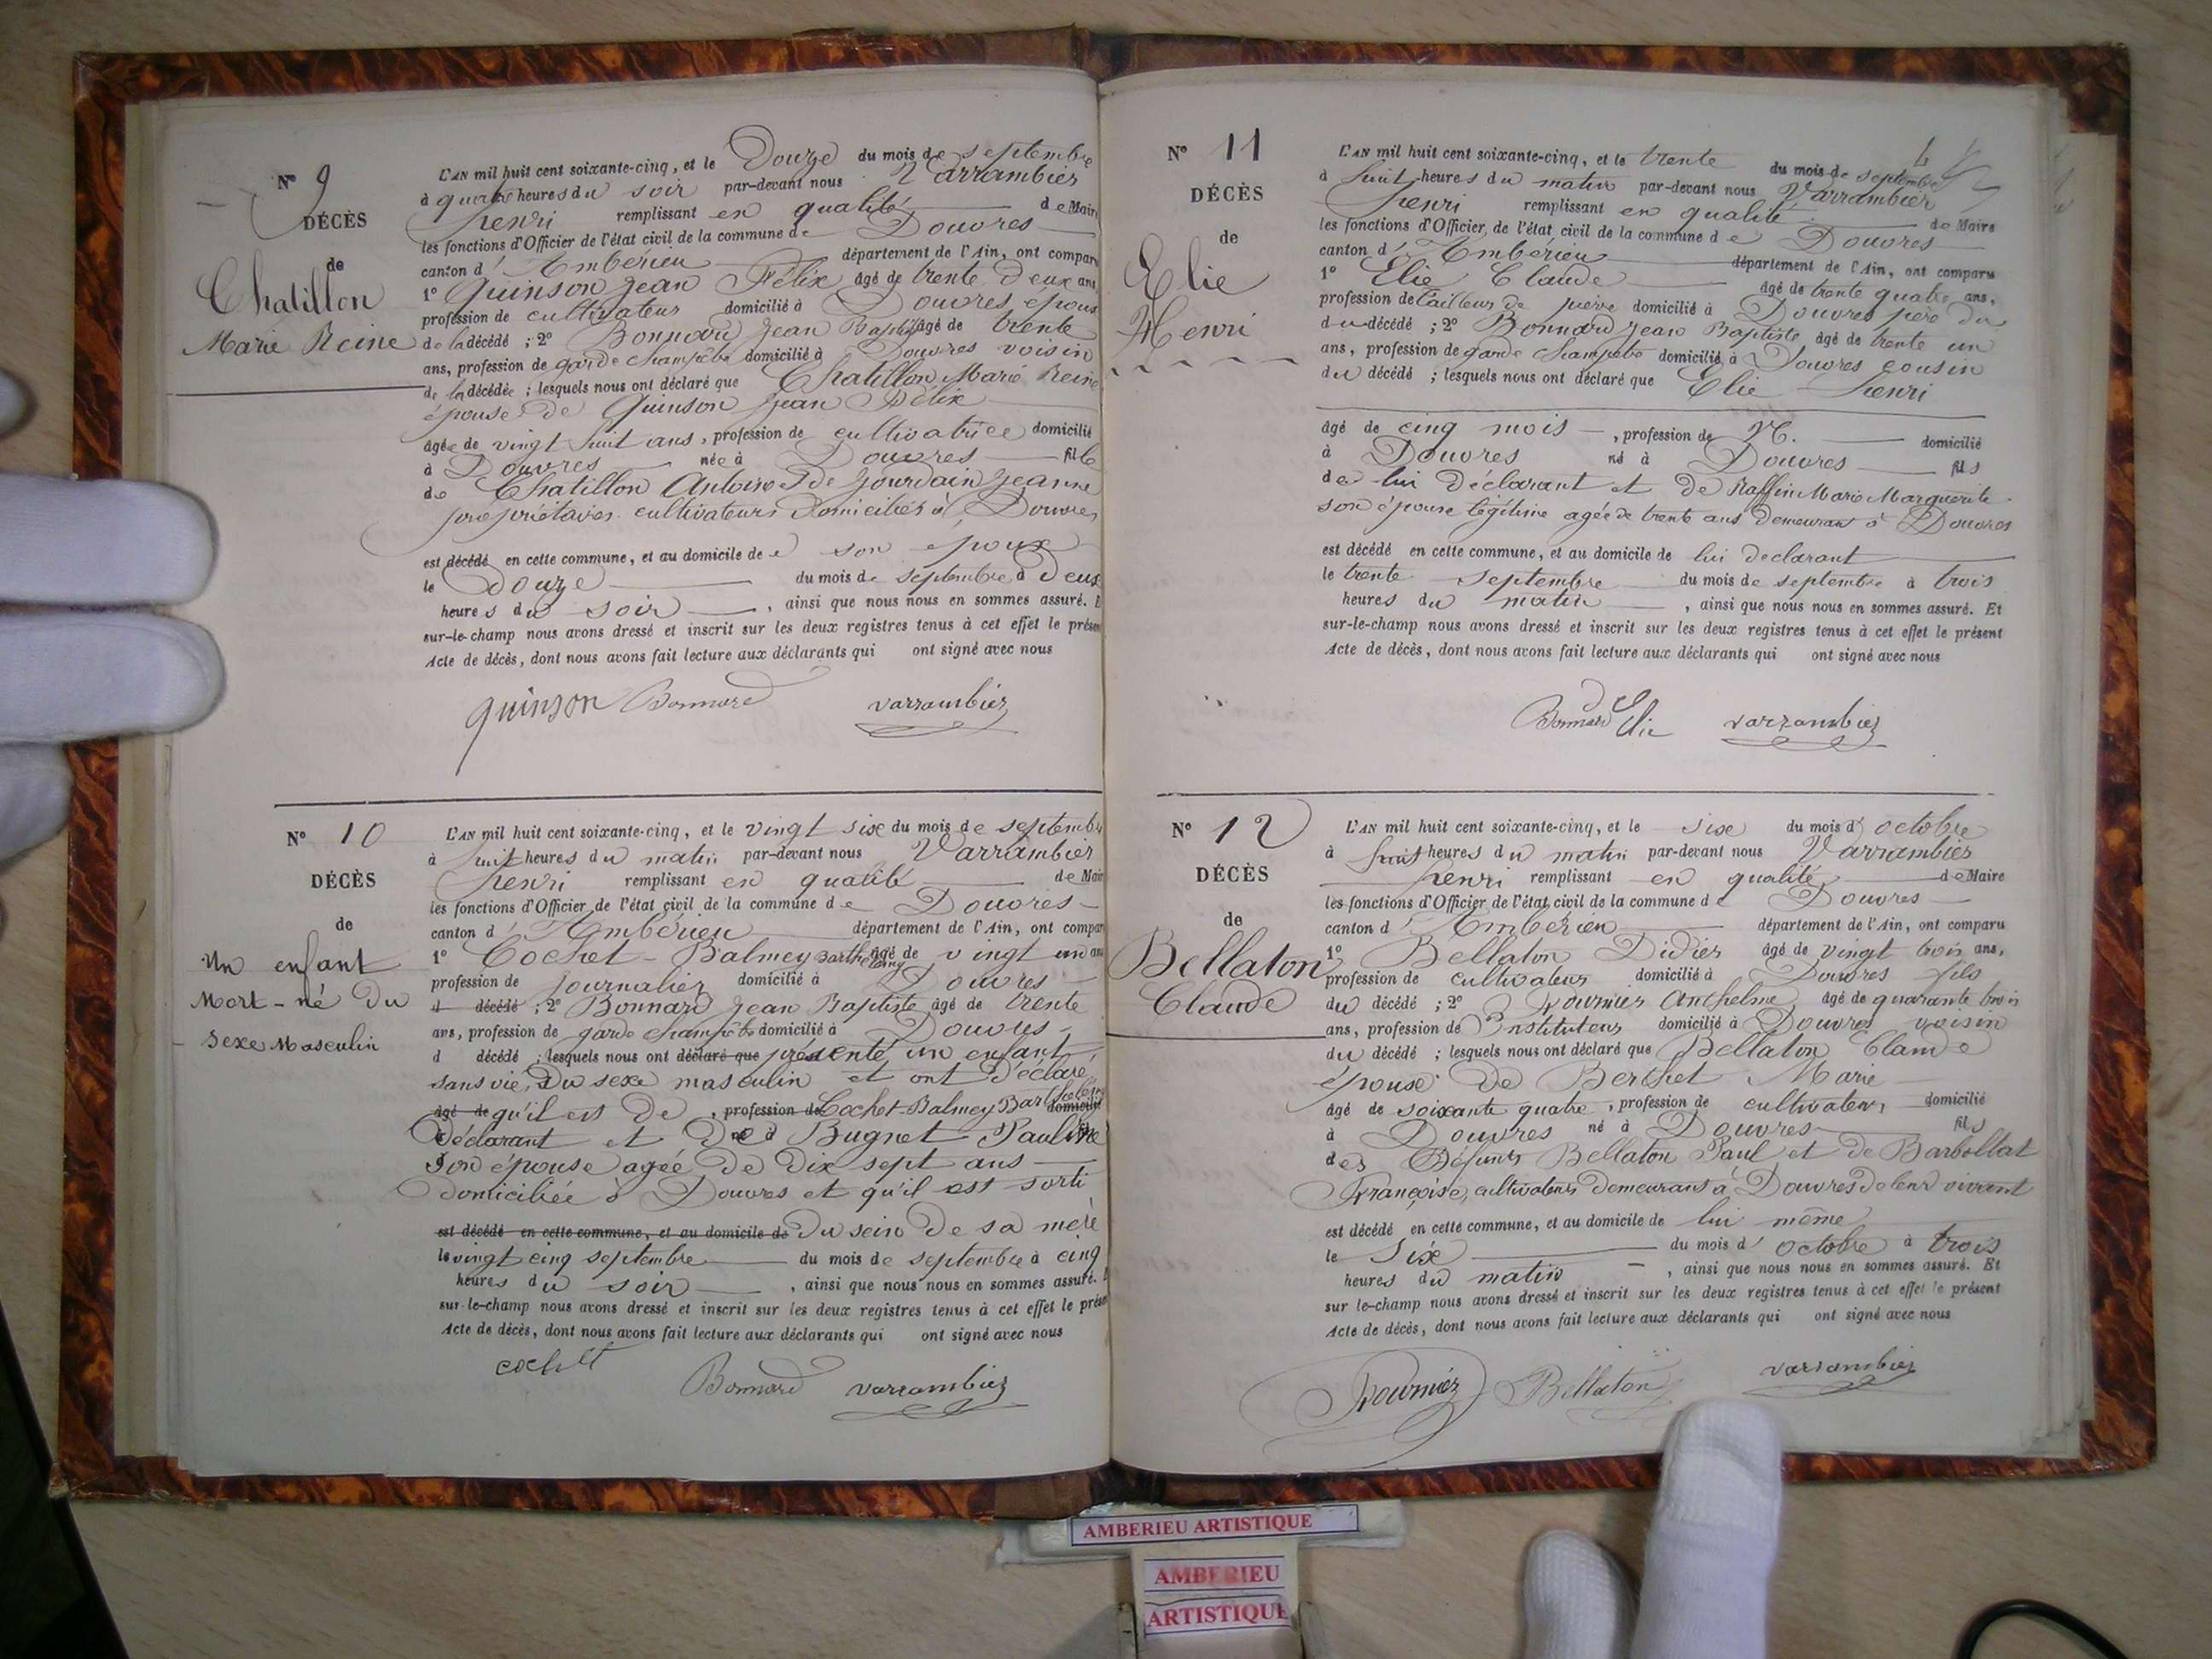 N° 9
DÉCÈS
de
Chatillon
Marie Reine
L'AN mil huit cent soixante-cinq, et le Douze du mois de septembre
à quatre heures du soir par-devant nous Varrambier
henri remplissant en qualité de Maire
les fonctions d'Officier de l'état civil de la commune de Douvres
canton d'Ambérieu département de l'Ain, ont compar
1° Quinson Jean Félix âgé de trente deux ans
profession de cultivateur domicilié à Douvres epoux
de la décédé ; 2° Bonnard Jean Baptiste âgé de trente
ans, profession de garde champêtre domicilié à Douvres voisin
de la décédée ; lesquels nous ont déclaré que Chatillon Marie Reine
épouse de Quinson Jean Félix
âgée de vingt huit ans, profession de cultivatrice domicilié
à Douvres née à Douvres fille
de Chatillon Antoine & de Jourdain Jeanne
propriétaires cultivateurs domiciliés à Douvres
est décédé en cette commune, et au domicile de son epoux
le Douze du mois de septembre à Deux
heures du soir, ainsi que nous nous en sommes assuré. E
sur-le-champ nous avons dressé et inscrit sur les deux registres tenus à cet effet le présen
Acte de décès, dont nous avons fait lecture aux déclarants qui ont signé avec nous
quinson Bonnard varrambier
N° 10
DÉCÈS
de
Un enfant
Mort-né du
Sexe Masculin
L'AN mil huit cent soixante-cinq, et le vingt six du mois de septembre
à huit heures du matin par-devant nous Varrambier
henri remplissant en qualité de Mair
les fonctions d'Officier de l'état civil de la commune de Douvres
canton d'Ambérieu département de l'Ain, ont compar
1° Cochet-Balmey Barthelemy âgé de vingt un an
profession de Journalier domicilié à Douvres
d décédé ; 2° Bonnard Jean Baptiste âgé de trente
ans, profession de garde champêtre domicilié à Douvres
d décédé ; lesquels nous ont déclaré que présenté un enfant
sans vie, Du sexe masculin et ont déclaré
âgé de qu'il est de , profession de Cochet-Balmey Barthelemy domicilié
Déclarant et De Bugnet Pauline
Son épouse agée de dix sept ans
domiciliée à Douvres et qu'il est sorti
est décédé en cette commune, et au domicile de Du sein De sa mère
le vingt cinq septembre du mois de septembre à cinq
heures du soir, ainsi que nous nous en sommes assuré. E
sur-le-champ nous avons dressé et inscrit sur les deux registres tenus à cet effet le présen
Acte de décès, dont nous avons fait lecture aux déclarants qui ont signé avec nous
cochet Bonnard varrambier
N° 11
DÉCÈS
de
Elie
Henri
L'AN mil huit cent soixante-cinq, et le trente du mois de septembre
à huit heures du matin par-devant nous Varrambier
henri remplissant en qualité de Maire
les fonctions d'Officier de l'état civil de la commune de Douvres
canton d'Ambérieu département de l'Ain, ont comparu
1° Elie Claude âgé de trente quatre ans,
profession de tailleur de pierre domicilié à Douvres père du
du décédé ; 2° Bonnard Jean Baptiste âgé de trente un
ans, profession de garde champêtre domicilié à Douvres cousin
du décédé ; lesquels nous ont déclaré que Elie henri
âgé de cinq mois, profession de N. domicilié
à Douvres né à Douvres fils
de lui déclarant et de Raffin Marie Marguerite
son épouse légitime agée de trente ans demeurant à Douvres
est décédé en cette commune, et au domicile de lui declarant
le trente septembre du mois de septembre à trois
heures du matin, ainsi que nous nous en sommes assuré. Et
sur-le-champ nous avons dressé et inscrit sur les deux registres tenus à cet effet le présent
Acte de décès, dont nous avons fait lecture aux déclarants qui ont signé avec nous
Bonnard Elie varrambier
N° 12
DÉCÈS
de
Bellaton
Claude
L'AN mil huit cent soixante-cinq, et le six du mois d'octobre
à huit heures du matin par-devant nous Varrambier
henri remplissant en qualité de Maire
les fonctions d'Officier de l'état civil de la commune de Douvres
canton d'Ambérieu département de l'Ain, ont comparu
1° Bellaton Didier âgé de vingt trois ans,
profession de cultivateur domicilié à Douvres fils
du décédé ; 2° Fournier Anthelme âgé de quarante trois
ans, profession de Instituteur domicilié à Douvres voisin
du décédé ; lesquels nous ont déclaré que Bellaton Claude
épouse de Berthet Marie
âgé de soixante quatre, profession de cultivateur domicilié
à Douvres né à Douvres fils
des Défunts Bellaton Paul et de Barbollat
Françoise, cultivateurs demeurans à Douvres de leur vivant
est décédé en cette commune, et au domicile de lui même
le Six du mois d'octobre à trois
heures du matin, ainsi que nous nous en sommes assuré. Et
sur le-champ nous avons dressé et inscrit sur les deux registres tenus à cet effet le présent
Acte de décès, dont nous avons fait lecture aux déclarants qui ont signé avec nous
Fournier Bellaton varrambier
AMBERIEU ARTISTIQUE
AMBERIEU
ARTISTIQUE